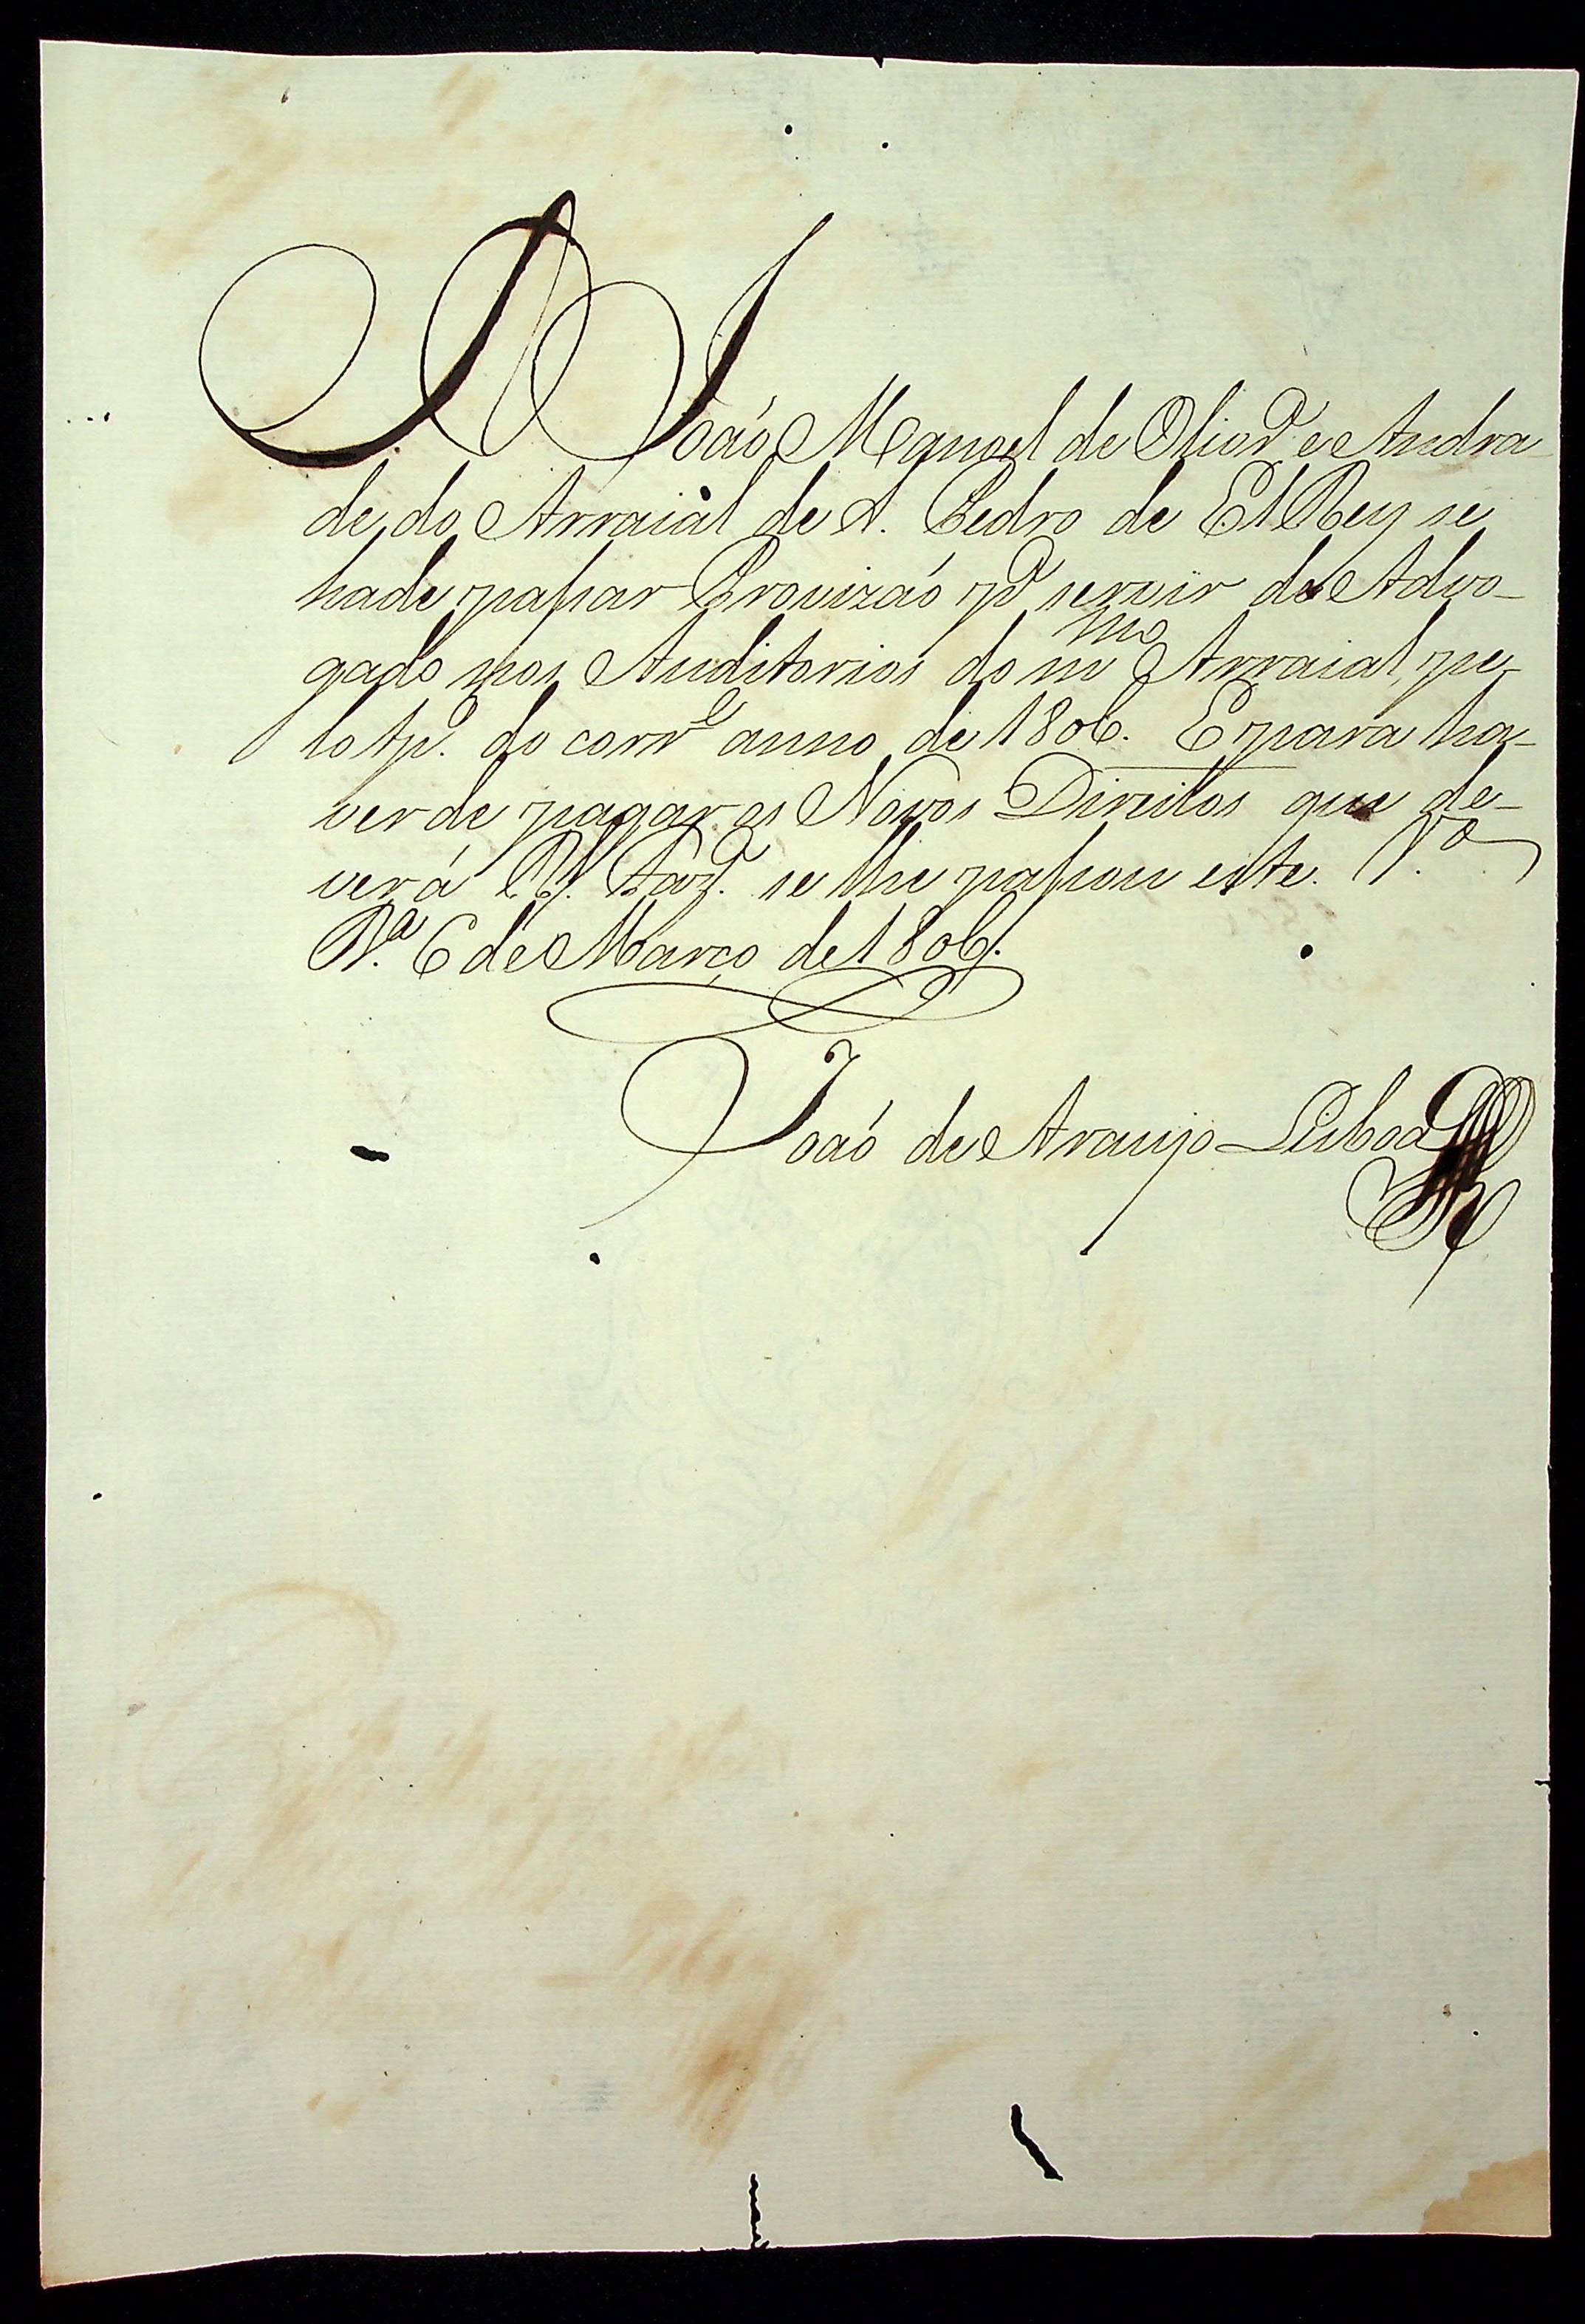 A João Manoel de Olivrª e Andra
de, do Arraial de S. Pedro de El Rey se
hade passar Provizaõ pª servir de Advo-
gado nos Auditorios do mmo Arraial, pe-
lo tpº. do corre anno de 1806. E para ha-
ver de pagar os Novos Direitos que de-
verá á Rl. Fazª. se lhe passou este. Vª
Rª. 6 de Março de 1806.
João de Araujo Lisboa